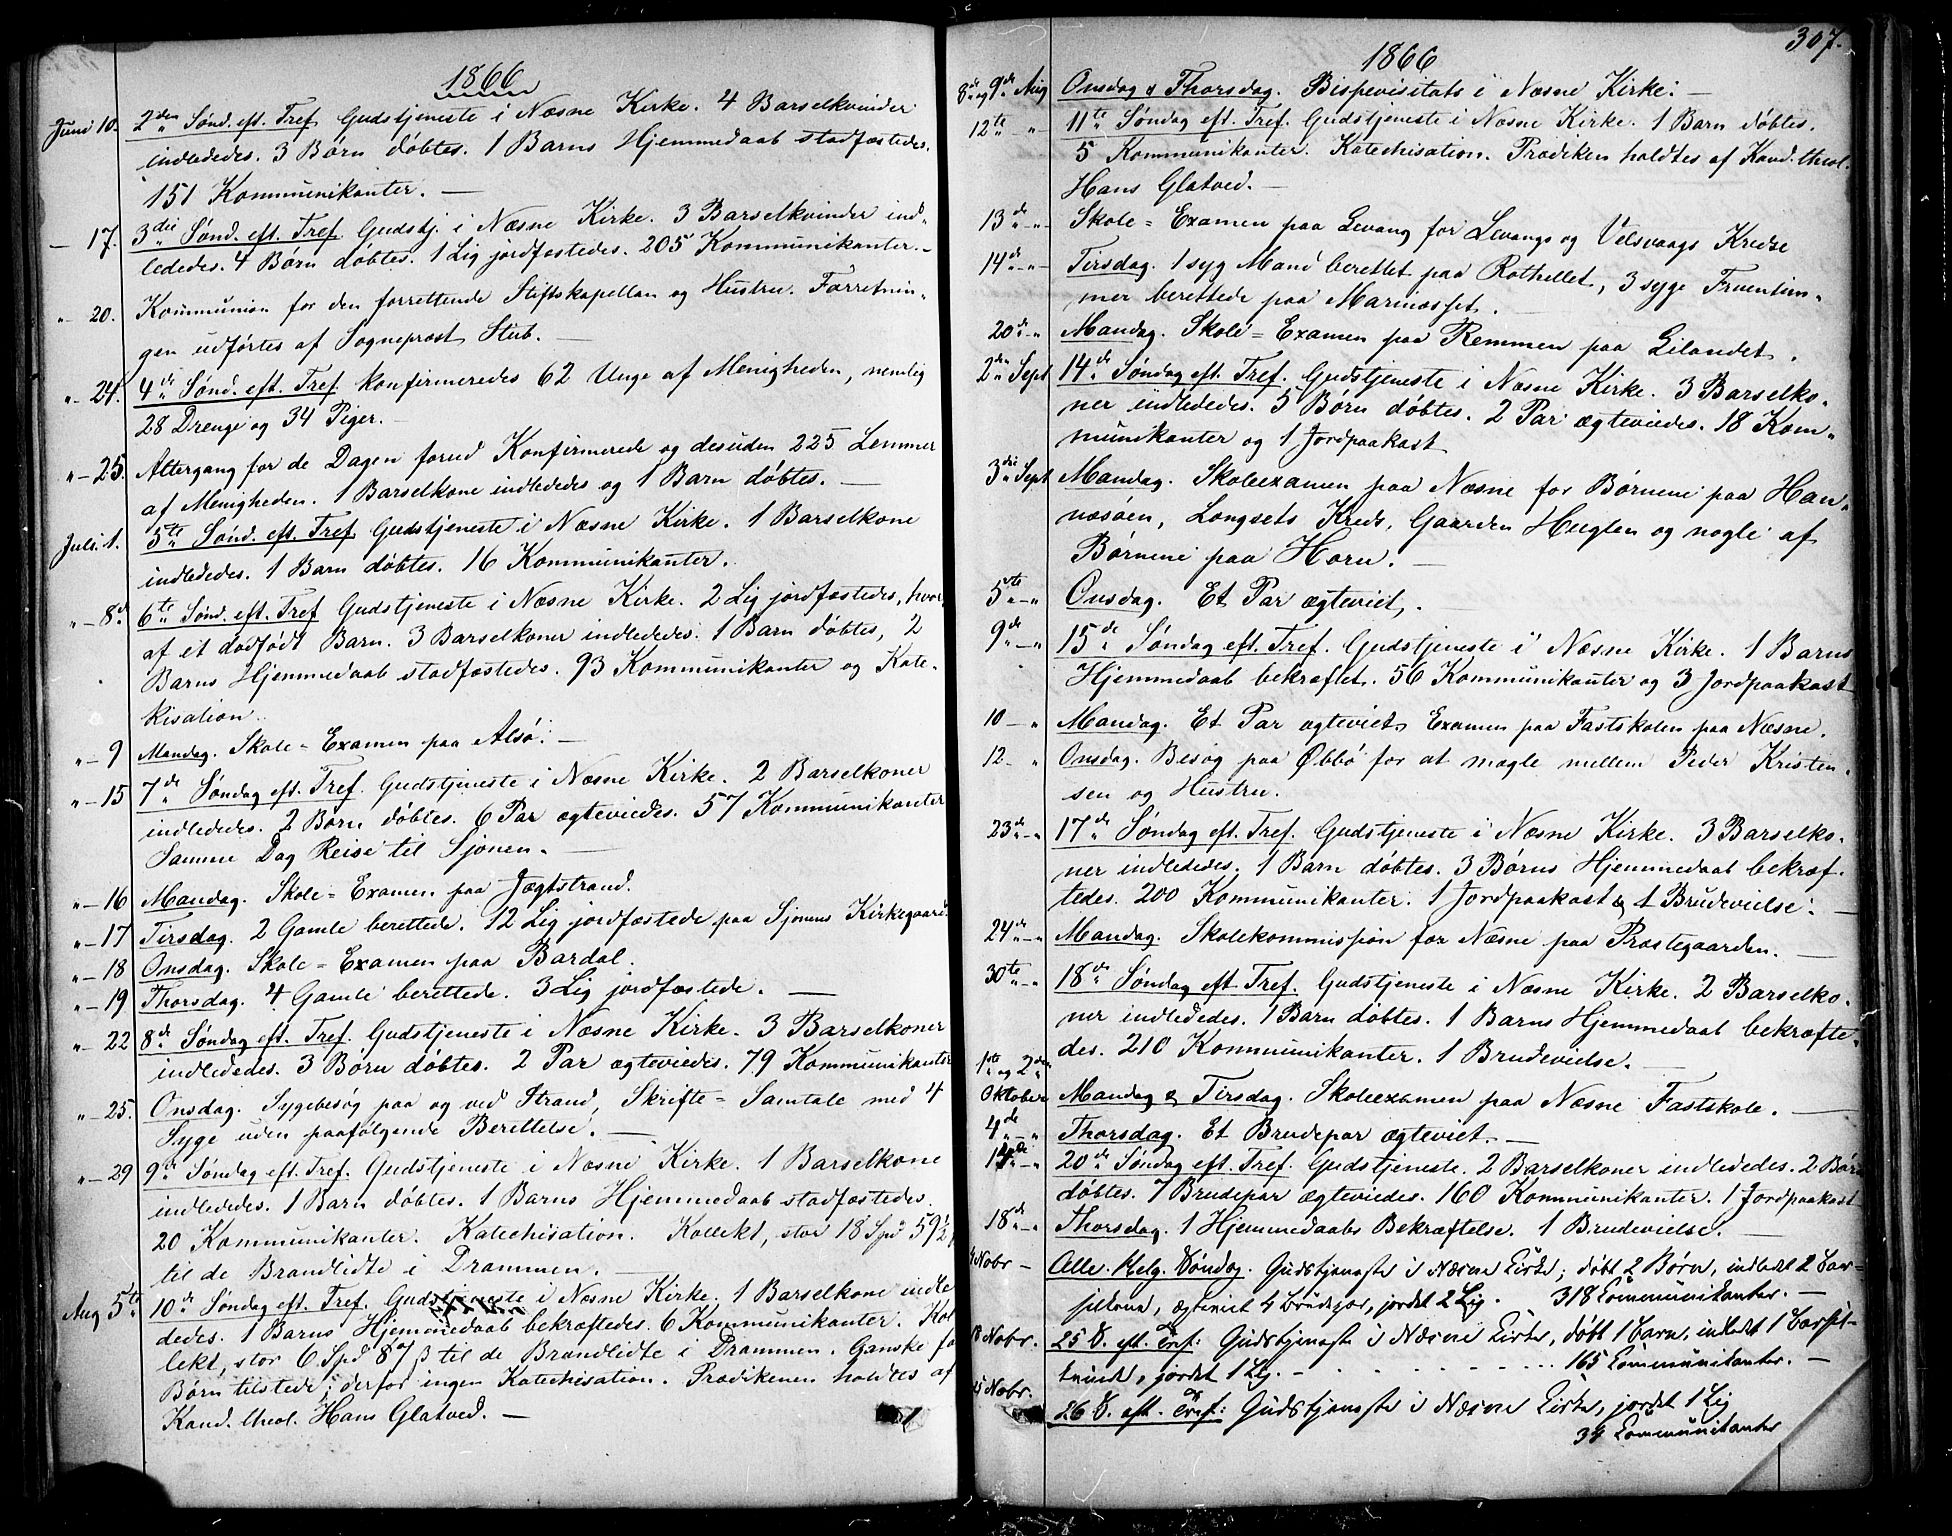 1866
Juni 10. 2den Sønd. eft. Tref. Gudstjeneste i Næsne Kirke. 4 Barselkvinder
indlededes. 3 Børn døbtes. 1 Barns Hjemmedaab stadfæstedes.
151 Kommunikanter. —
— 17. 3die Sønd. eft. Tref. Gudstj. i Næsne Kirke. 3 Barselkvinder ind-
lededes. 4 Børn døbtes. 1 Lig jordfæstedes. 205 Kommunikanter. —
" 20. Kommunion for den forrettende Stiftskapellan og Hustru. Forretnin-
gen udførtes af Sogneprest Stub. —
" - 24. 4de Sønd. eft. Tref. konfirmeredes 62 Unge af Menigheden, nemlig
28 Drenge og 34 Piger. —
" - 25. Altergang for de Dagen forud Konfirmerede og desuden 225 Lemmer
af Menigheden. 1 Barselkone indlededes og 1 Barn døbtes. —
Juli 1. 5te Sønd. eft. Tref. Gudstjeneste i Næsne Kirke. 1 Barselkone
indlededes. 1 Barn døbtes. 16 Kommunikanter.
" - 8de 6te Sønd. eft. Tref Gudstjeneste i Næsne Kirke. 2 Lig jordfæstedes, hvor-
af et dødfødt Barn. 3 Barselkoner indlededes. 1 Barn døbtes, 2
Barns Hjemmedaab stadfæstedes. 93 Kommunikanter og Kate-
kisation.
" - 9 Mandag. Skole-Examen paa Alsø. —
" - 15 7de Søndag eft. Tref. Gudstjeneste i Næsne Kirke. 2 Barselkoner
indlededes. 2 Børn døbtes. 6 Par ægteviedes. 57 Kommunikanter
Samme Dag Reise til Sjonen. —
" - 16 Mandag. Skole-Examen paa Jægtstrand.
" - 17 Tirsdag. 2 Gamle berettede. 12 Lig jordfæstede paa Sjonens Kirkegaard
" - 18 Onsdag. Skole-Examen paa Bardal.
" - 19 Thorsdag. 4 Gamle berettede. 3 Lig jordfæstede. —
" - 22 8de Søndag eft. Tref. Gudstjeneste i Næsne Kirke. 3 Barselkoner
indlededes. 3 Børn døbtes. 2 Par ægteviedes. 79 Kommunikanter
" - 25. Onsdag. Sygebesøg paa og ved Strand, Skrifte-Samtale med 4
Syge uden paafølgende Berettelse. —
" - 29 9de Søndag eft. Tref. Gudstjeneste i Næsne Kirke. 1 Barselkone
indlededes. 1 Barn døbtes. 1 Barns Hjemmedaab stadfæstedes.
20 Kommunikanter. Katechisation. Kollekt, stor 18 Spd 59½
til de Brandlidte i Drammen. —
Aug 5te 10de Søndag eft. Tref. Gudstjeneste i Næsne Kirke. 1 Barselkone indle
dedes. 1 Barns Hjemmedaab bekræftedes. 6 Kommunikanter. Kol
lekt, stor 6 Spd 87 ß til de Brandlidte i Drammen. Ganske fa
Børn tilstede; derfor ingen Katechisation. Prædikenen holdtes af
Kand. theol. Hans Glatved. —
307.
1866
8de og 9de Aug Onsdag & Thorsdag. Bispevisitats i Næsne Kirke. —
12te - " 11te Søndag eft. Tref. Gudstjeneste i Næsne Kirke. 1 Barn døbtes.
5 Kommunikanter. Katechisation. Prædiken holdtes af Kand. theol.
Hans Glatved. —
13de " - Skole-Examen paa Levang for Levangs og Velsvaags Kredse
14de - " - Tirsdag. 1 syg Mand berettet paa Rothellet, 3 syge Fruentim-
mer berettede paa Marniosset.
20de - " Mandag. Skole-Examen paa Remmen paa Gilandet.
2den Sept 14de Søndag eft. Tref. Gudstjeneste i Næsne Kirke. 3 Barselko-
ner indlededes. 5 Børn døbtes. 2 Par ægteviedes. 18 Kom-
munikanter og 1 Jordpaakast
3die Sept Mandag. Skoleexamen paa Næsne for Børnene paa Han-
nøsøen, Langsets Kreds, Gaarden Huglen og nogle af
Børnene paa Horn. —
5te - " Onsdag. Et Par ægteviet.
9de - " 15de Søndag eft. Tref. Gudstjeneste i Næsne Kirke. 1 Barns
Hjemmedaab bekræftet. 56 Kommunikanter og 3 Jordpaakast
10 - " Mandag. Et Par ægteviet. Examen paa Fastskolen paa Næsne.
12 - " Onsdag. Besøg paa Øbbø for at mægle mellem Peder Kristen-
sen og Hustru.
23de - " 17de Søndag eft. Tref. Gudstjeneste i Næsne Kirke. 3 Barselko-
ner indlededes. 1 Barn døbtes. 3 Børns Hjemmedaab bekræf-
tedes. 200 Kommunikanter. 1 Jordpaakast & 1 Brudevielse. —
24de - " Mandag. Skolekommission for Næsne paa Præstegaarden. —
30te - " 18de Søndag eft. Tref. Gudstjeneste i Næsne Kirke. 2 Barselko-
ner indlededes. 1 Barn døbtes. 1 Barns Hjemmedaab bekræfte-
des. 210 Kommunikanter. 1 Brudevielse. —
1ste og 2den
Oktober Mandag & Tirsdag. Skoleexamen paa Næsne Fastskole. —
4de - " Thorsdag. Et Brudepar ægteviet. —
14de - " 20de Søndag eft. Tref. Gudstjeneste. 2 Barselkoner indlededes. 2 Børn
døbtes. 7 Brudepar ægteviedes. 160 Kommunikanter. 1 Jordpaakast
18de - " Thorsdag. 1 Hjemmedaabs Bekræftelse. 1 Brudevielse. —
4 Nobr - Alle. Helg. Søndag. Gudstjeneste i Næsne Kirke; døbt 2 Børn, indledt 2 Bar-
selkoner, ægteviet 4 Brudepar, jordet 2 Lig. 318 Communikanter. —
18 Nobr. 25 S. eft. Tref: Gudstjeneste i Næsne Kirke, døbt 1 Barn, indledt 1 Barsel-
kvinde, jordet 1 Lig. — . . . . . 165 Communikanter. —
25 Nobr. 26 S. eft. Tref: Gudstjeneste i Næsne Kirke, jordet 1 Lig
34 Communikanter